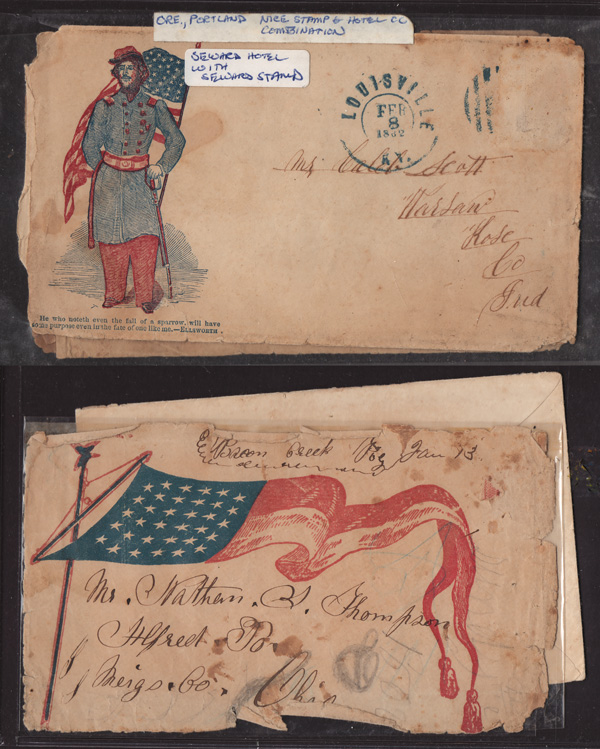 ORE., PORTLAND NICE STAMP & HOTEL CO
COMBINATION
SEWARD HOTEL
WITH
SEWARD STAMP
LOUISVILLE
FEB
8
1862
KY.
Mr Caleb Scott
Warsaw
Kose
Co
Ind
He who noteth even the fall of a sparrow, will have
some purpose even in the fate of one like me.—ELLSWORTH.
Creek Jan 13
Mr. Nathan. S. Thompson
Alfred Po.
Meigs. Co. Ohio